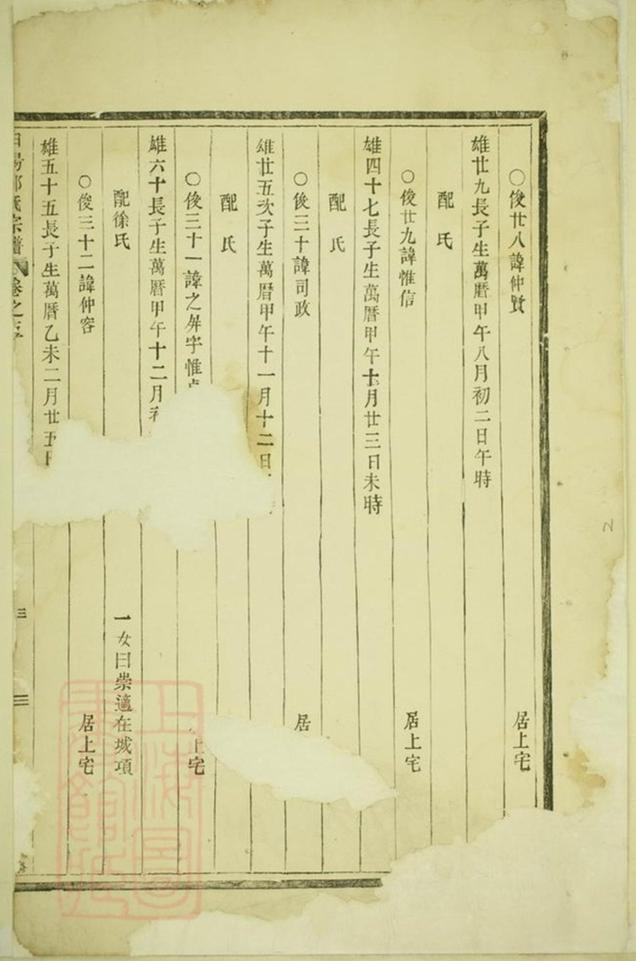 ○俊廿八諱仲賢 居上宅
雄廿九長子生萬曆甲午八月初二日午時
配 氏
○俊廿九諱惟信 居上宅
雄四十七長子生萬曆甲午七月廿三日未時
配 氏
○俊三十諱司政 居
雄廿五次子生萬曆甲午十一月十二日
配 氏
○俊三十一諱之屏字惟 上宅
雄六十長子生萬曆甲午十二月
配徐氏 一女曰崇適在城項
○俊三十二諱仲容 居上宅
雄五十五長子生萬曆乙未二月廿五日
氏宗譜 卷之 三